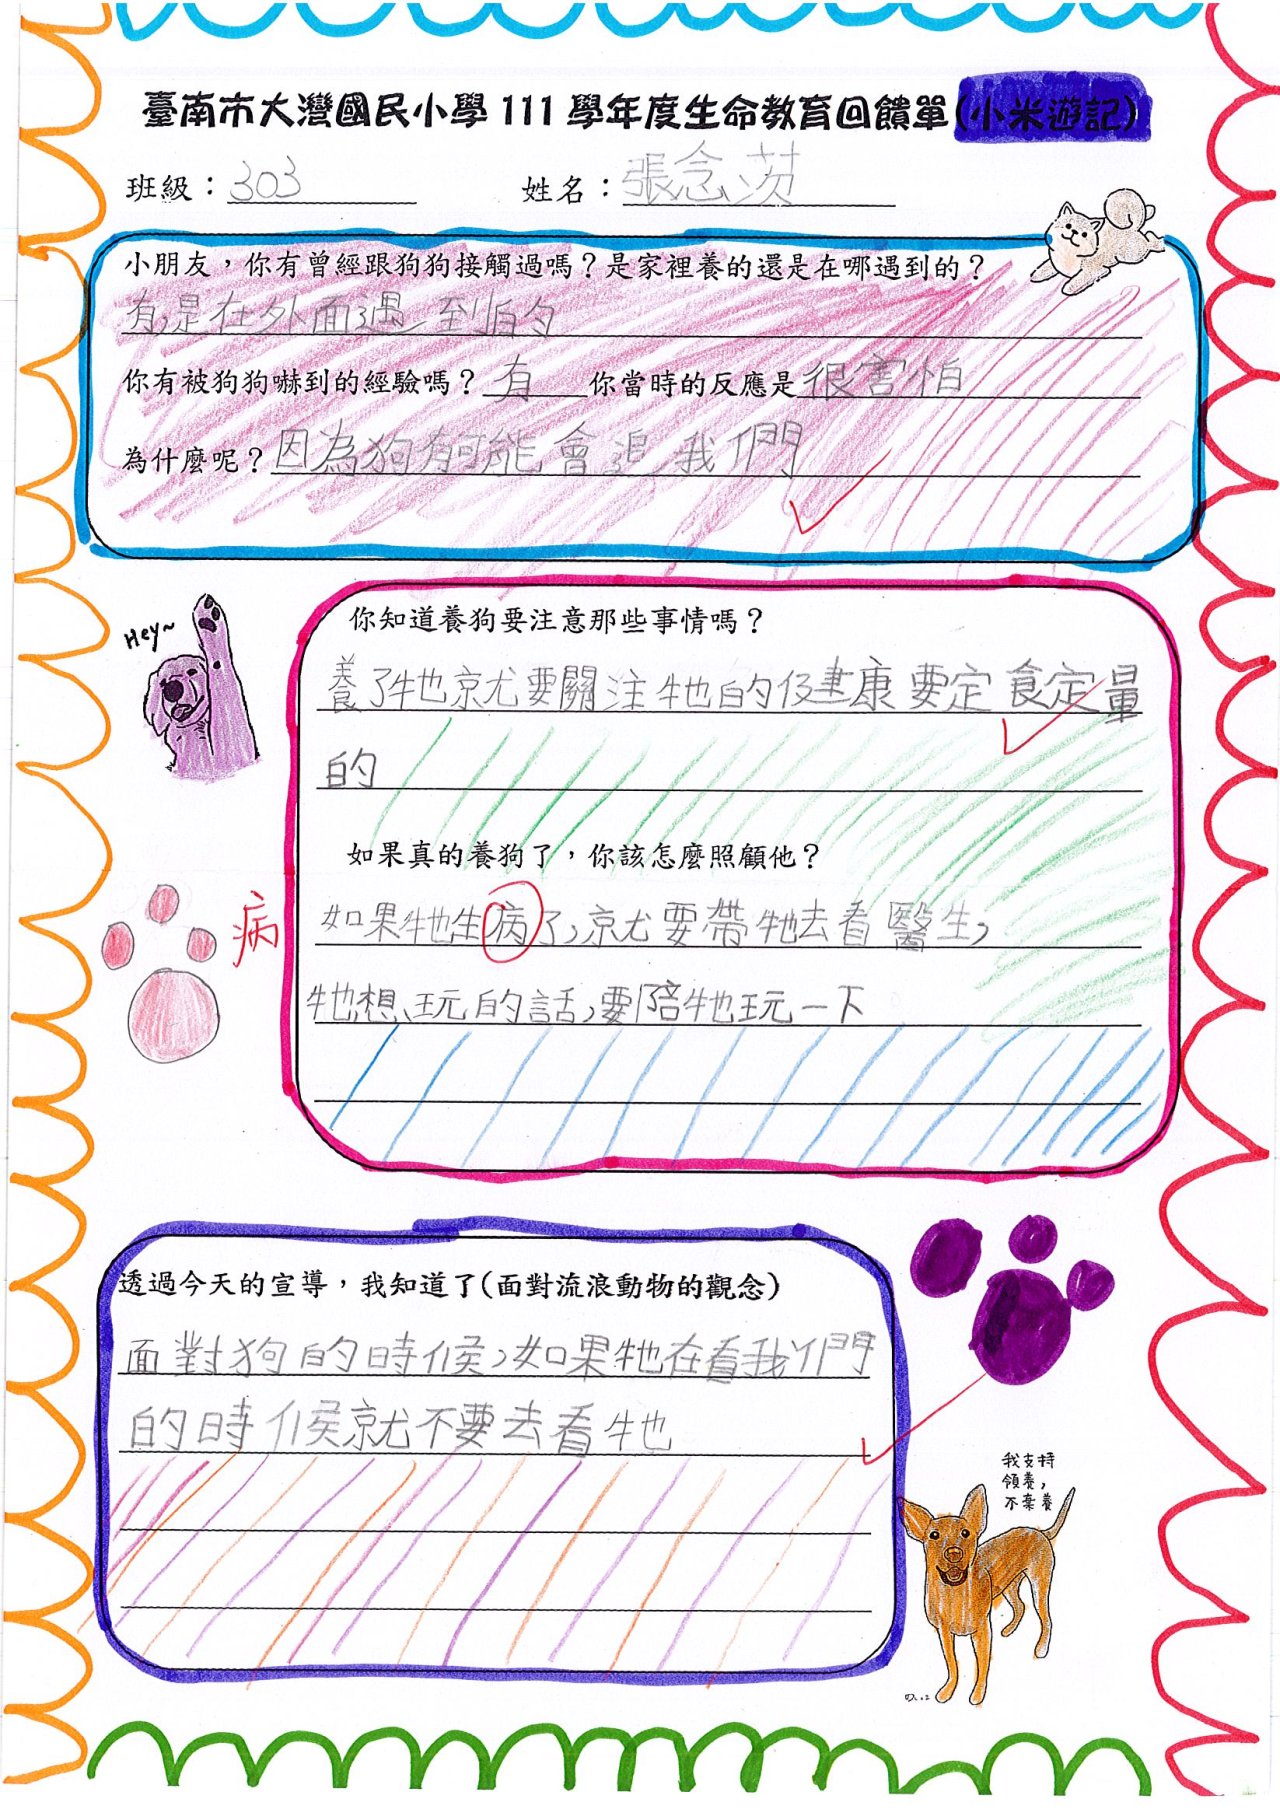 臺南市大灣國民小學111學年度生命教育回饋單(小米遊記)
班級：303 姓名：張念茨
小朋友，你有曾經跟狗狗接觸過嗎？是家裡養的還是在哪遇到的？
有,是在外面遇到怕勺
你有被狗狗嚇到的經驗嗎？有 你當時的反應是很害怕
為什麼呢？因為狗有可能會追我們
Hey~
你知道養狗要注意那些事情嗎？
養了牠就要關注牠的健康要定食定量
的
如果真的養狗了，你該怎麼照顧他？
病
如果牠生病了,就要帶牠去看醫生,
牠想玩的話,要陪牠玩一下
透過今天的宣導，我知道了(面對流浪動物的觀念)
面對狗的時候,如果牠在看我們
的時候就不要去看牠
我支持
領養,
不棄養